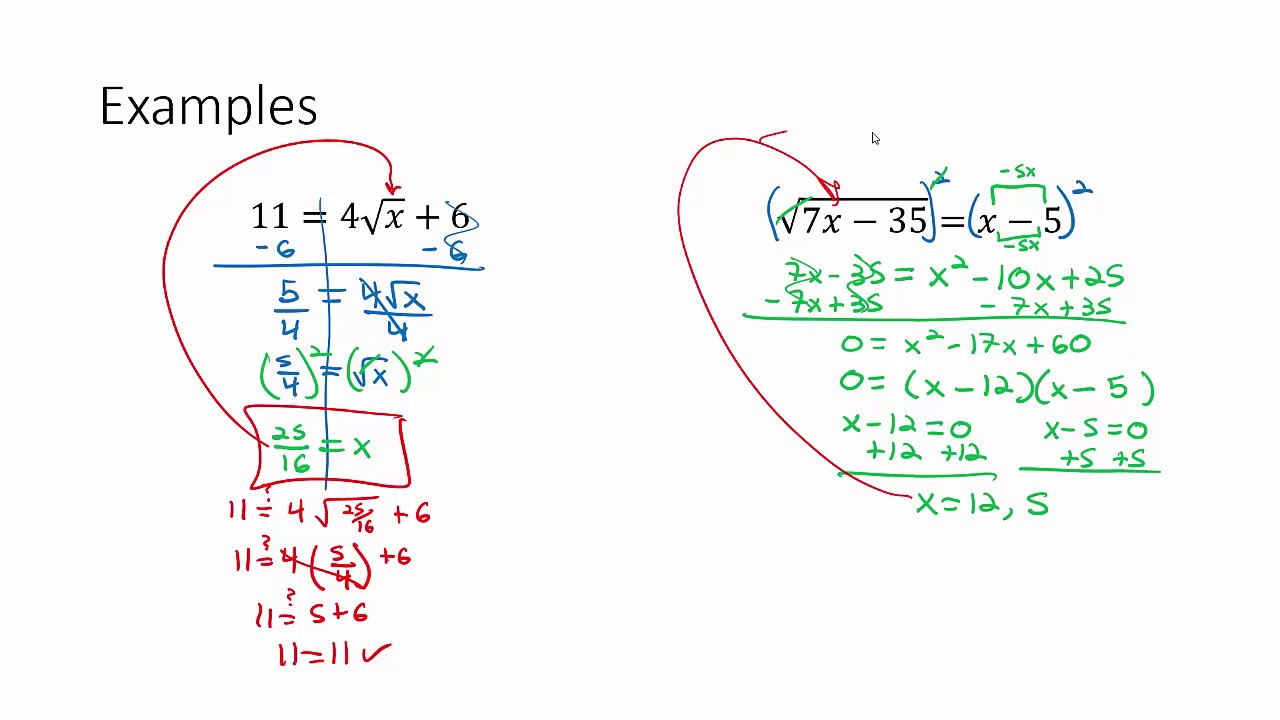 Examples
11 = 4√x + 6
- 6 - 6
5/4 = 4√x/4
(5/4)² = (√x)²
25/16 = x
11 ≟ 4√(25/16) + 6
11 ≟ 4(5/4) + 6
11 ≟ 5 + 6
11 = 11 ✓
-5x
(√(7x − 35))² = (x − 5)²
-5x
7x - 35 = x² - 10x + 25
- 7x + 35 - 7x + 35
0 = x² - 17x + 60
0 = (x - 12)(x - 5)
x - 12 = 0 x - 5 = 0
+12 +12 +5 +5
x = 12, 5